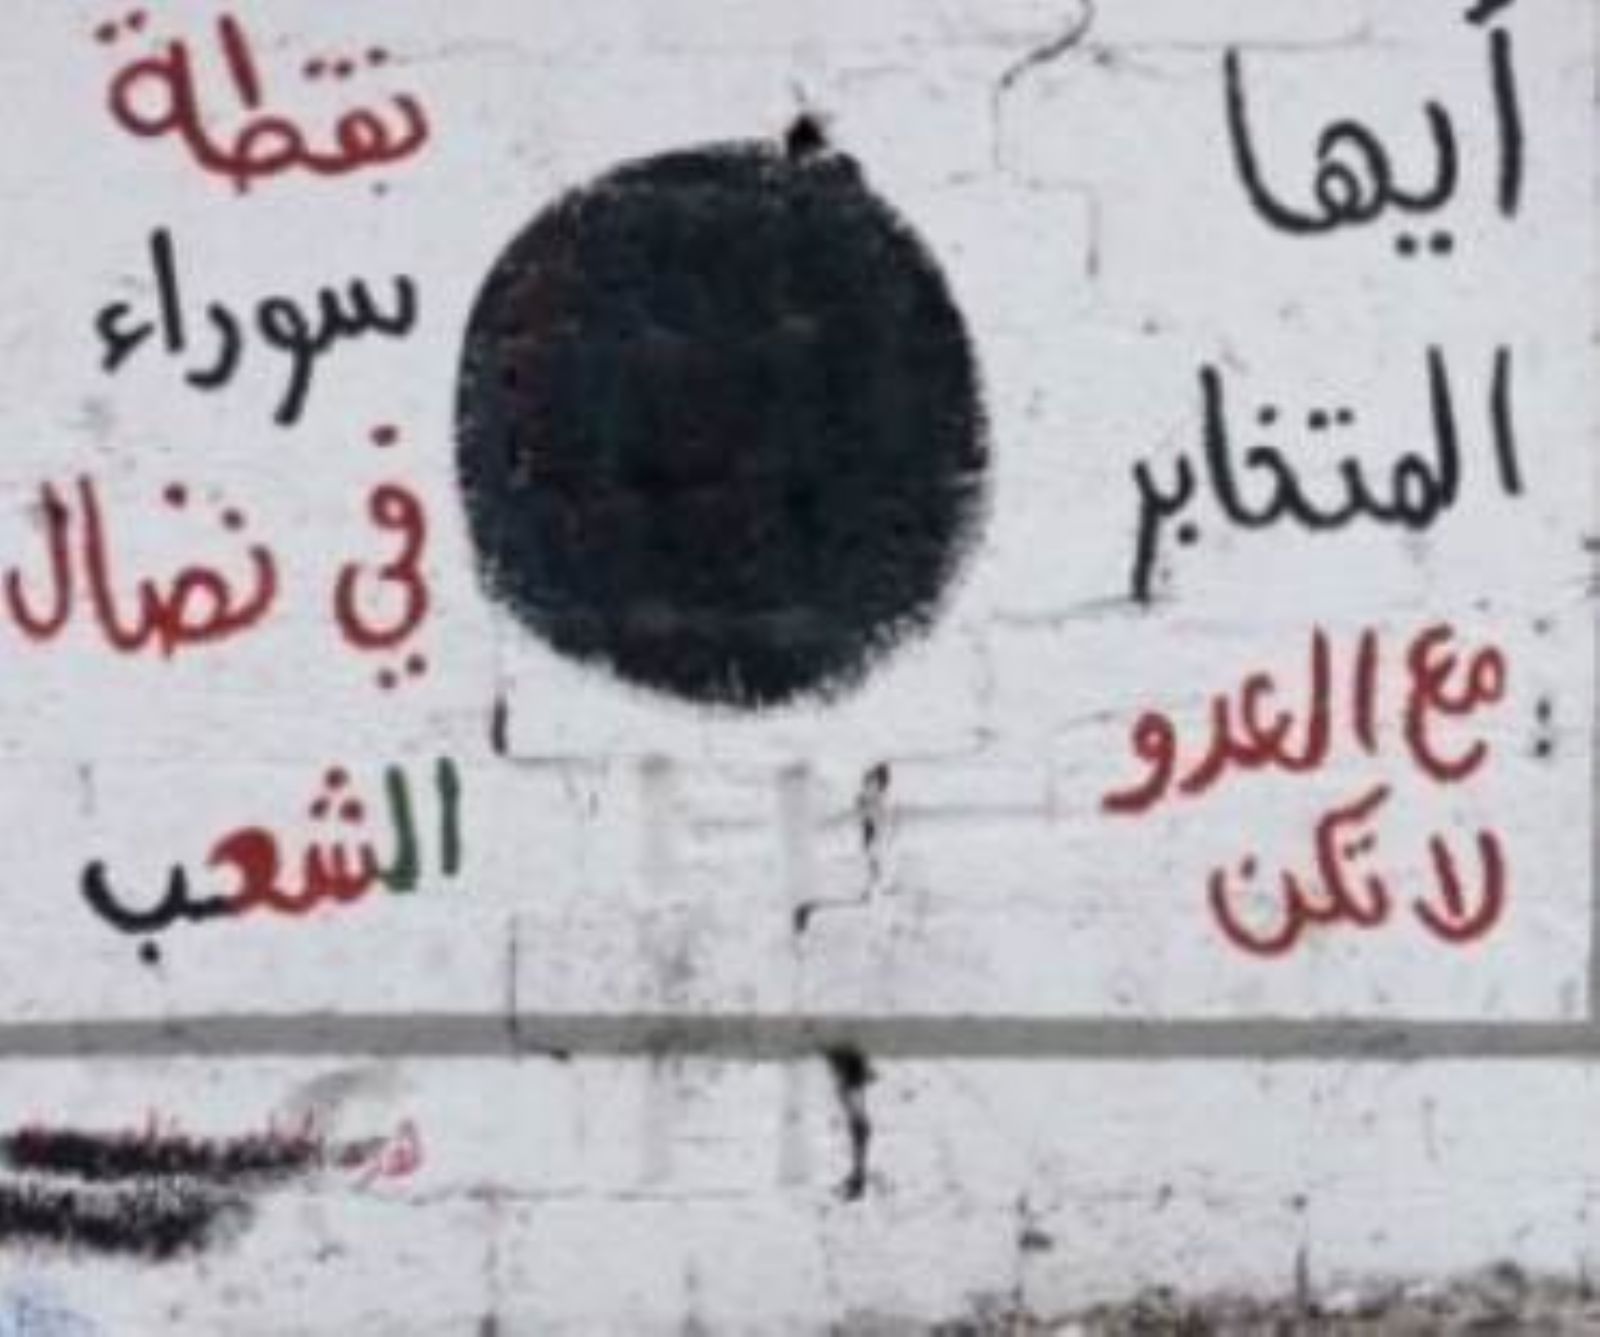 أيها
المتخابر
مع العدو
لا تكن
نقطة
سوراء
في نضال
الشعب